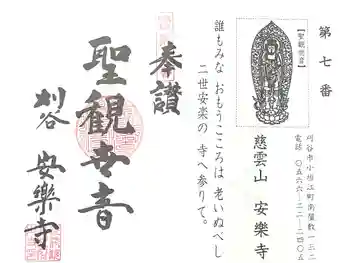 第七番
【聖観世音】
刈谷市小垣江町南屋敷一三二
電話 〇五六六-二二-二四〇五
慈雲山 安樂寺
誰もみな おもうこころは 老いぬべし
二世安楽の 寺へ参りて。
奉讃
聖観世音
刈谷 安樂寺